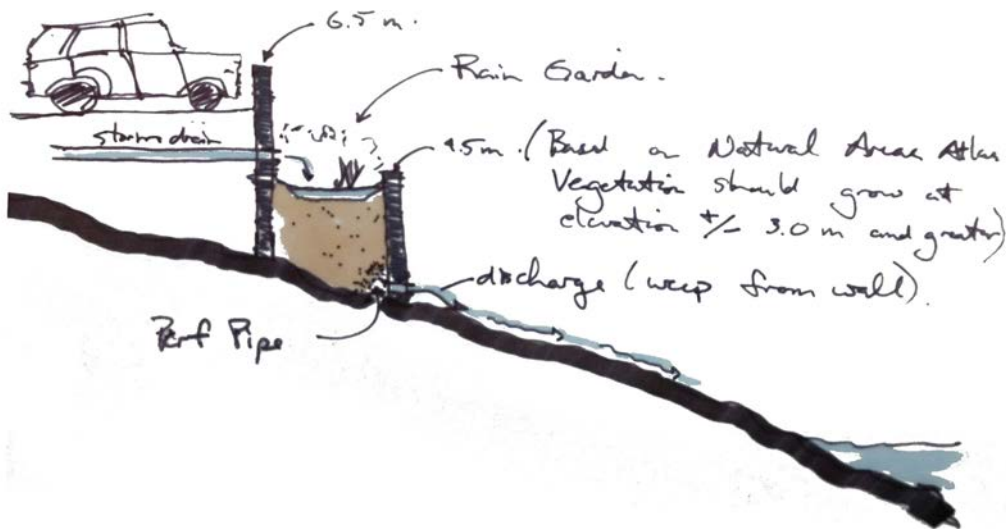 6.5 m.
Rain Garden.
storm drain
4.5 m. (Based on Natural Areas Atlas
Vegetation should grow at
elevation +/- 3.0 m and greater)
discharge (weep from wall).
Perf Pipe